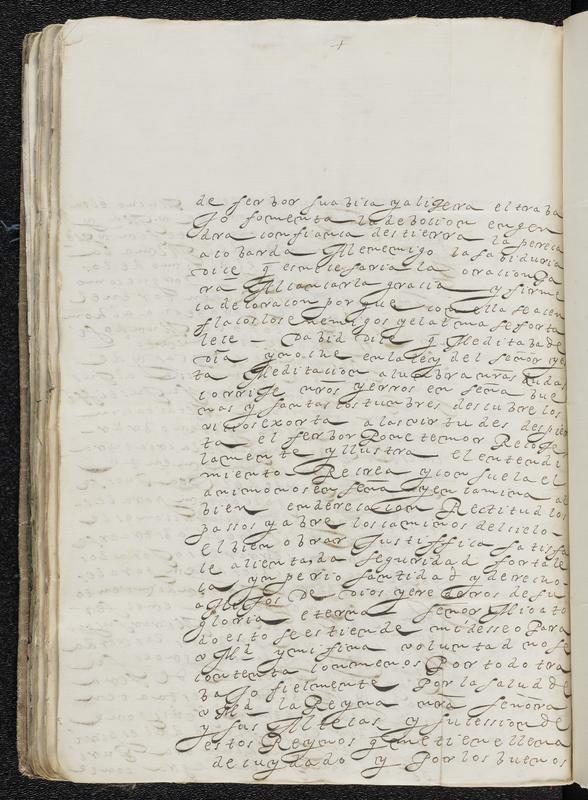 +
de ferbor suabiça y aligera el traba
Jo fomenta la deboçion engen
dra confiança destierra la pereça
acobarda Al enemigo la sabiduria
diçe q̃ es neçesaria la oraçion Pa
ra Alcançar la graçia y firme
ça de coraçon porque con ella se acen
flacos los enemigos y el alma se forta
leçe — Dabid diçe q̃ Meditaba de
dia y noche en la ley del señor y es
ta Meditaçion alumbra nr̃as dudas
corrige nr̃os yerros enseña bue
nas y santas costumbres descubre los
viçios exorta a las virtudes despier
ta el ferbor Pone temor Recoge
la mente yllustra el entendi
miento Recrea y consuela el
animo nos enseña y encamina al
bien endereça con Rectitud los
passos y abre los caminos del çielo —
el bien obrar Justiffica satisfa
çe alienta da seguridad fortale
ça ynperio santidad y derecho
a Hijos De Dios y erederos de su
gloria eterna señor Mio a to
do esto se estiende mi desseo Para
v Mḏ y mi fina voluntad no se
contenta con menos Por todo tra
bajo fielmente Por la salud de
v Mḏ la Reyna nr̃a señora
y sus Alteças y suçession de
estos Reynos q̃ me tiene llena
de cuydado y Por los buenos